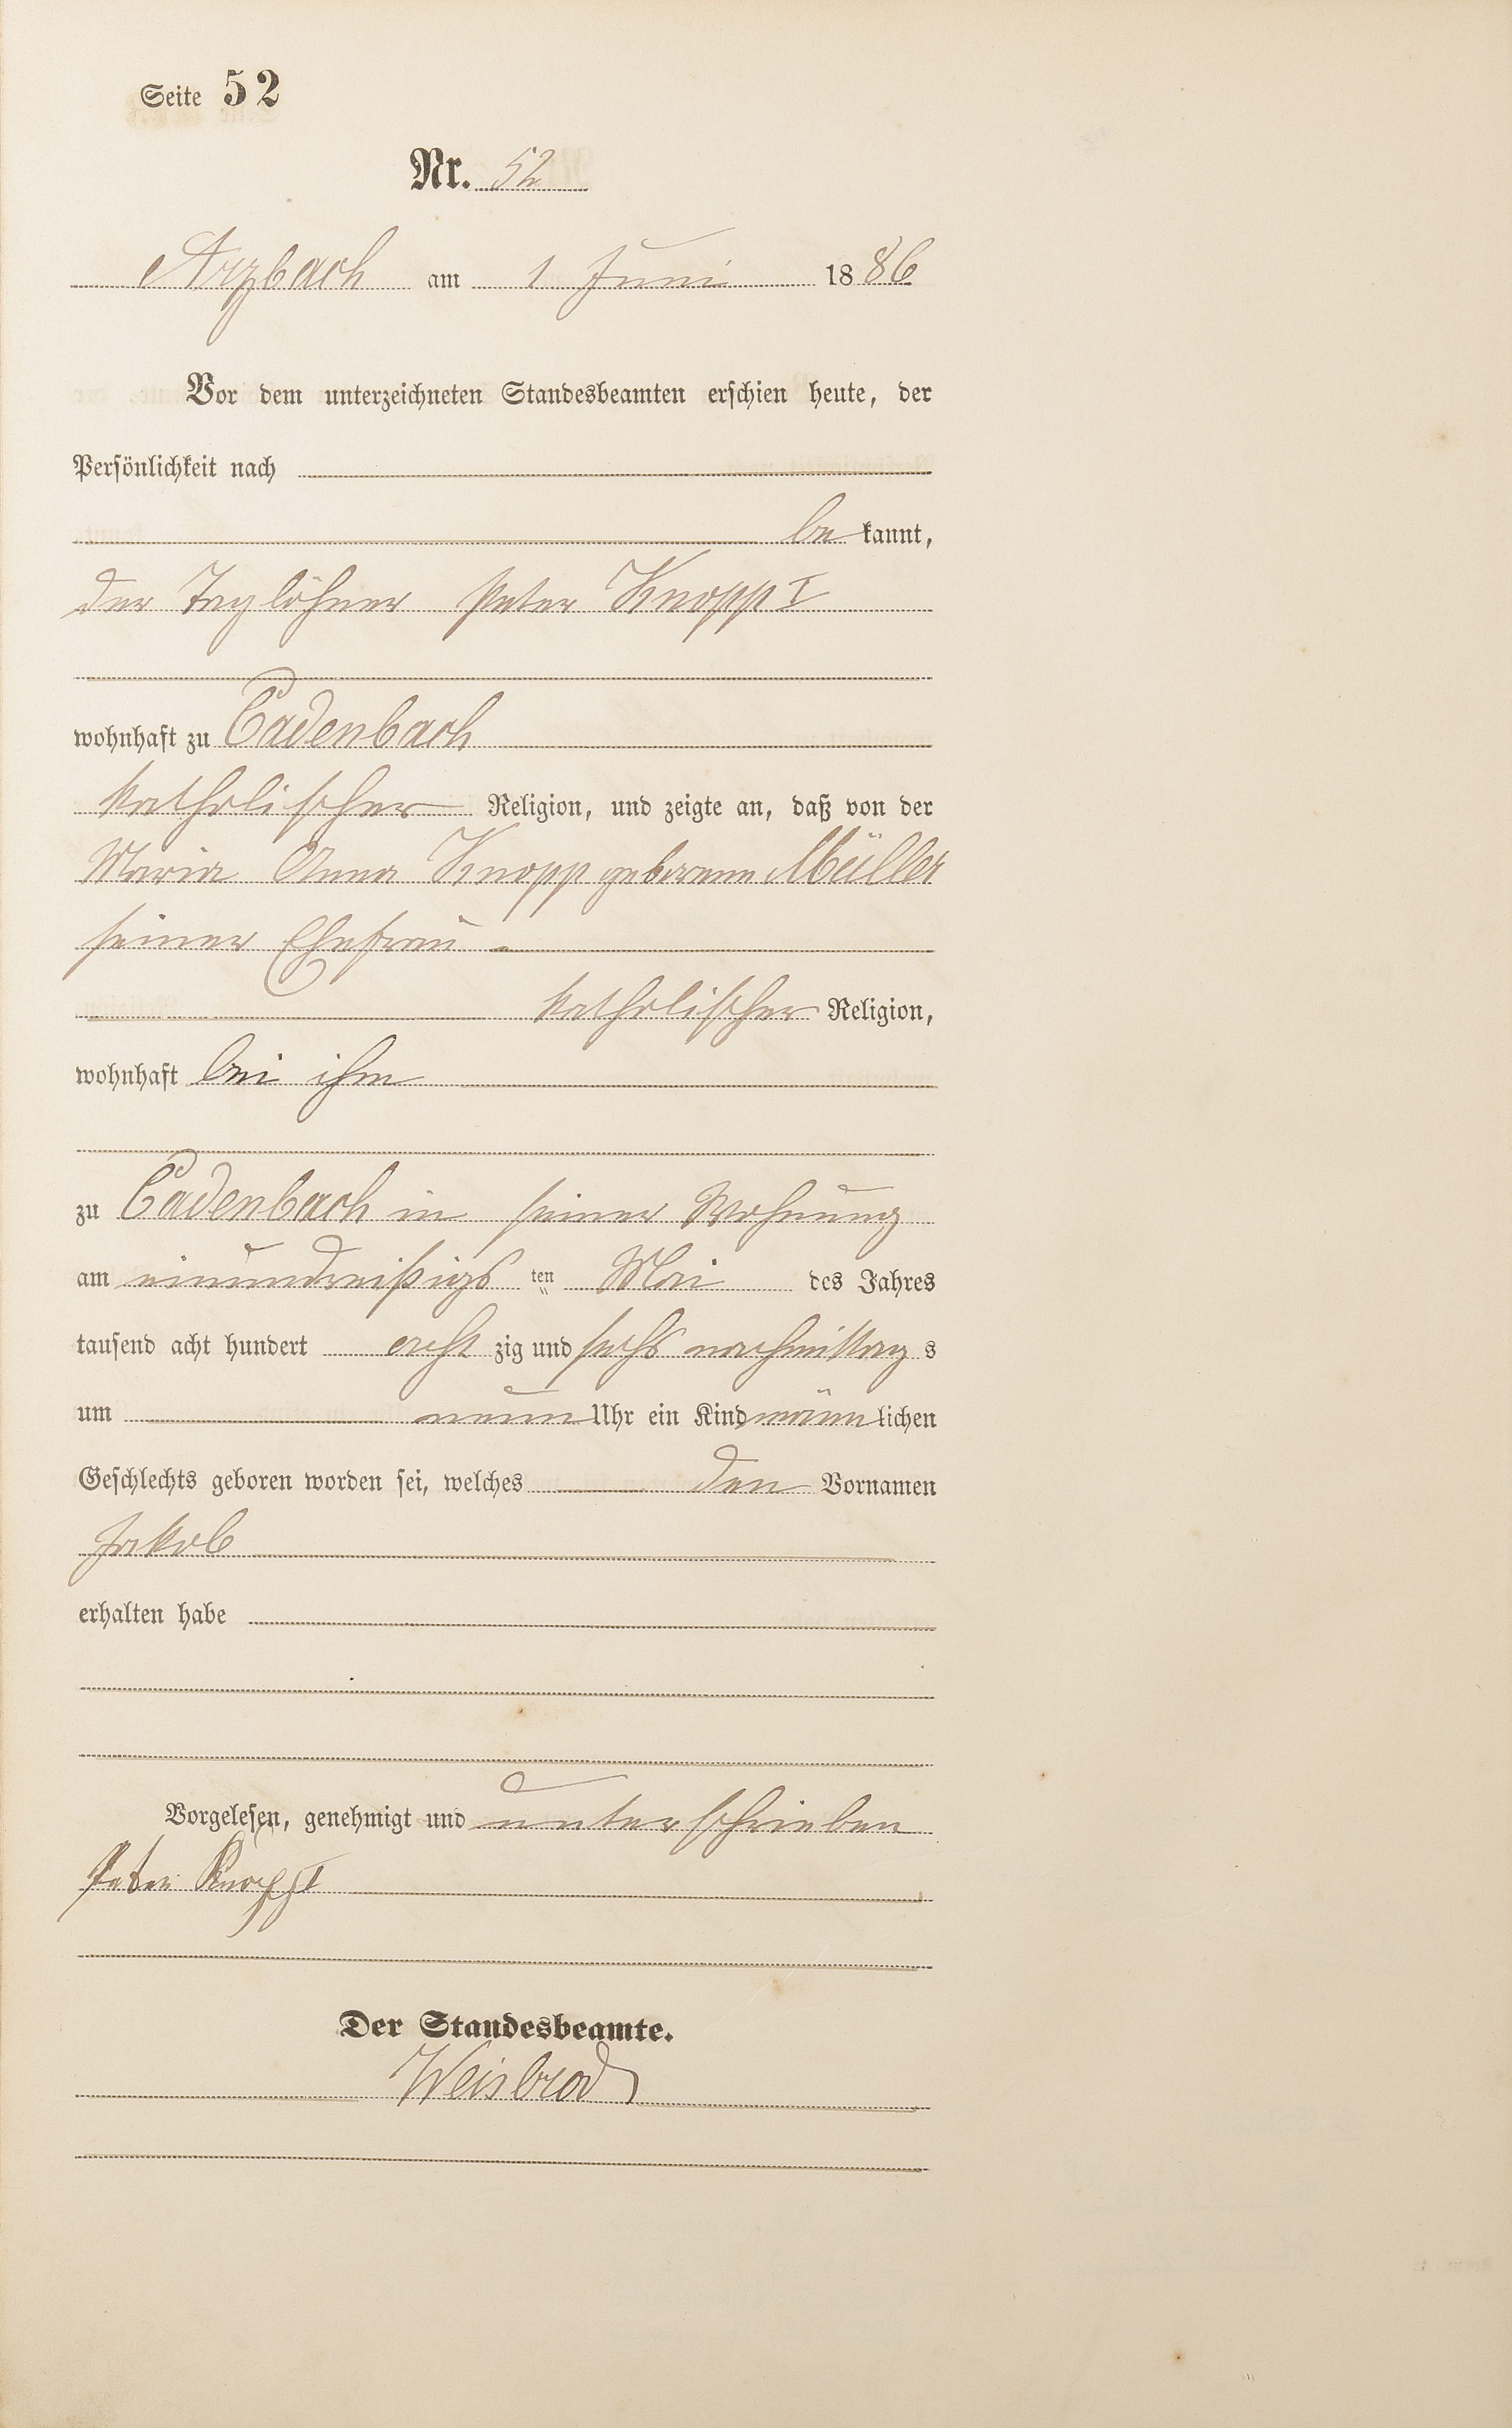 Seite 52
Nr. 52
Arzbach am 1 Juni 1886
Vor dem unterzeichneten Standesbeamten erschien heute, der
Persönlichkeit nach
bekannt,
der Taglöhner Peter Knopp I
wohnhaft zu Cadenbach
katholischer Religion, und zeigte an, daß von der
Maria Anna Knopp geborene Müller
seiner Ehefrau
katholischer Religion,
wohnhaft bei ihm
zu Cadenbach in seiner Wohnung
am einundreißigs ten Mai des Jahres
tausend acht hundert acht zig und sechs nachmittag s
um neun Uhr ein Kind männlichen
Geschlechts geboren worden sei, welches den Vornamen
Jakob
erhalten habe
Vorgelesen, genehmigt und unterschrieben
Peter Knopp I
Der Standesbeamte.
Weisbrod